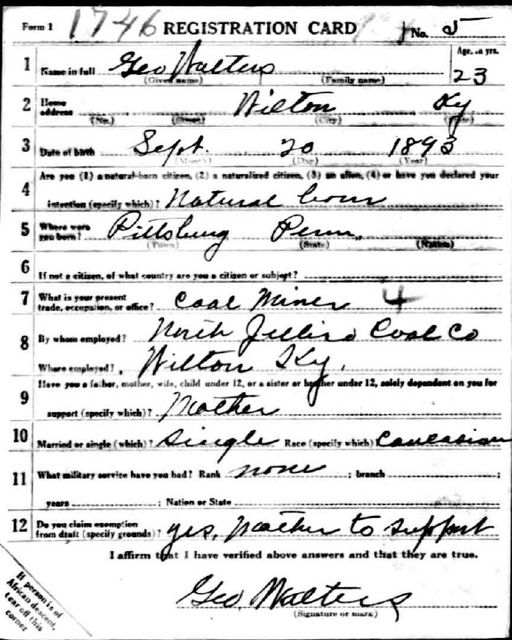 Form 1 1746 REGISTRATION CARD No. 5
1 Name in full Geo Walters Age, in yrs. 23
(Given name) (Family name)
2 Home address Wilton Ky
(No.) (Street) (City) (State)
3 Date of birth Sept. 20 1893
(Month) (Day) (Year)
4 Are you (1) a natural-born citizen, (2) a naturalized citizen, (3) an alien, (4) or have you declared your
intention (specify which)? Natural born
5 Where were you born? Pittsburg Penn.
(Town) (State) (Nation)
6 If not a citizen, of what country are you a citizen or subject?
7 What is your present trade, occupation, or office? Coal Miner 4
8 By whom employed? North Jellico Coal Co
Where employed? Wilton Ky.
9 Have you a father, mother, wife, child under 12, or a sister or brother under 12, solely dependent on you for
support (specify which)? Mother
10 Married or single (which)? Single Race (specify which) Caucasian
11 What military service have you had? Rank none ; branch ;
years ; Nation or State
12 Do you claim exemption from draft (specify grounds)? yes, Mother to support
I affirm that I have verified above answers and that they are true.
Geo. Walters
(Signature or mark)
If person is of
African descent,
tear off this
corner